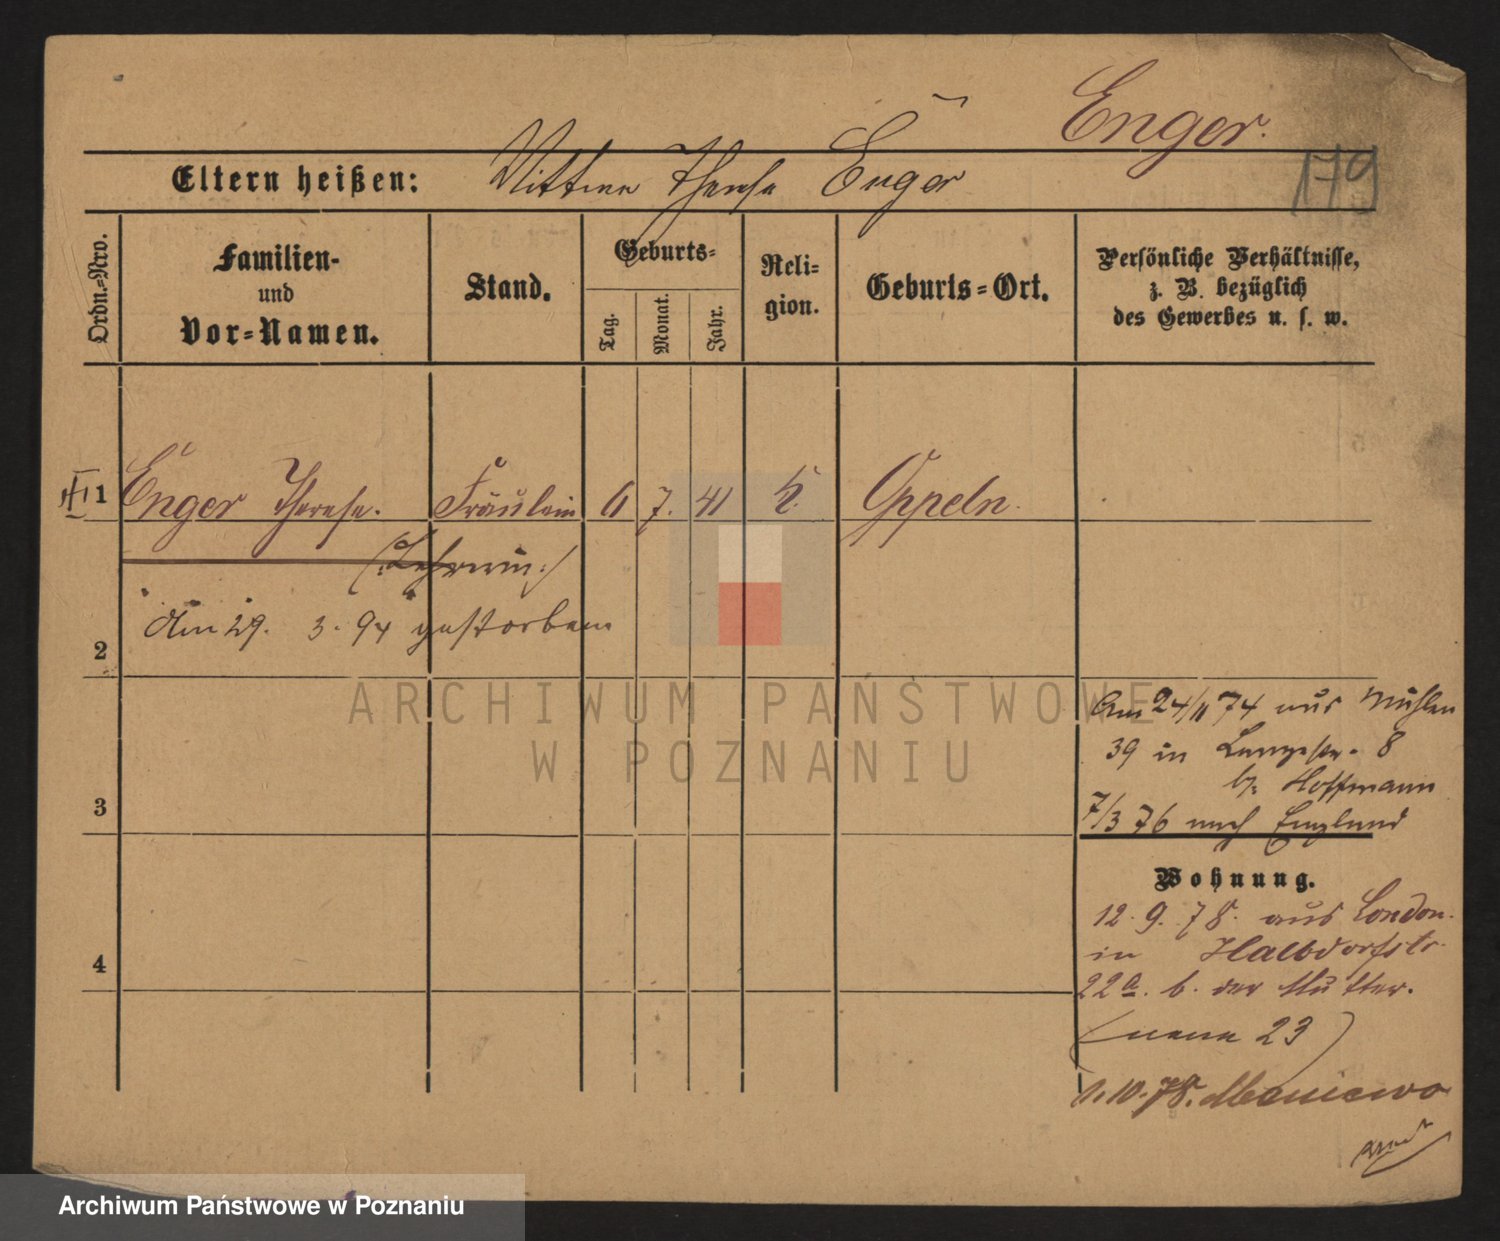 Enger.
179
Eltern heißen: Therese Enger
Ordn.-Nro.
Familien-
und
Vor-Namen.
Stand.
Geburts-
Tag.
Monat.
Jahr.
Reli-
gion.
Geburts-Ort.
Persönliche Verhältnisse,
z. B. bezüglich
des Gewerbes u. s. w.
1 Enger Therese. Fräulein 6 7. 41 k. Oppeln.
(:Lehrerin:)
Am 29. 3. 94 gestorben
2
3
4
Am 24/11 74 aus Mühlen
39 in Langestr. 8
b/: Hoffmann
7/3 76 nach England
Wohnung.
12. 9. 78. aus London.
in Halbdorfstr.
22a. b. der Mutter.
(neue 23)
1. 10. 78.
ARCHIWUM PAŃSTWOWE
W POZNANIU
Archiwum Państwowe w Poznaniu